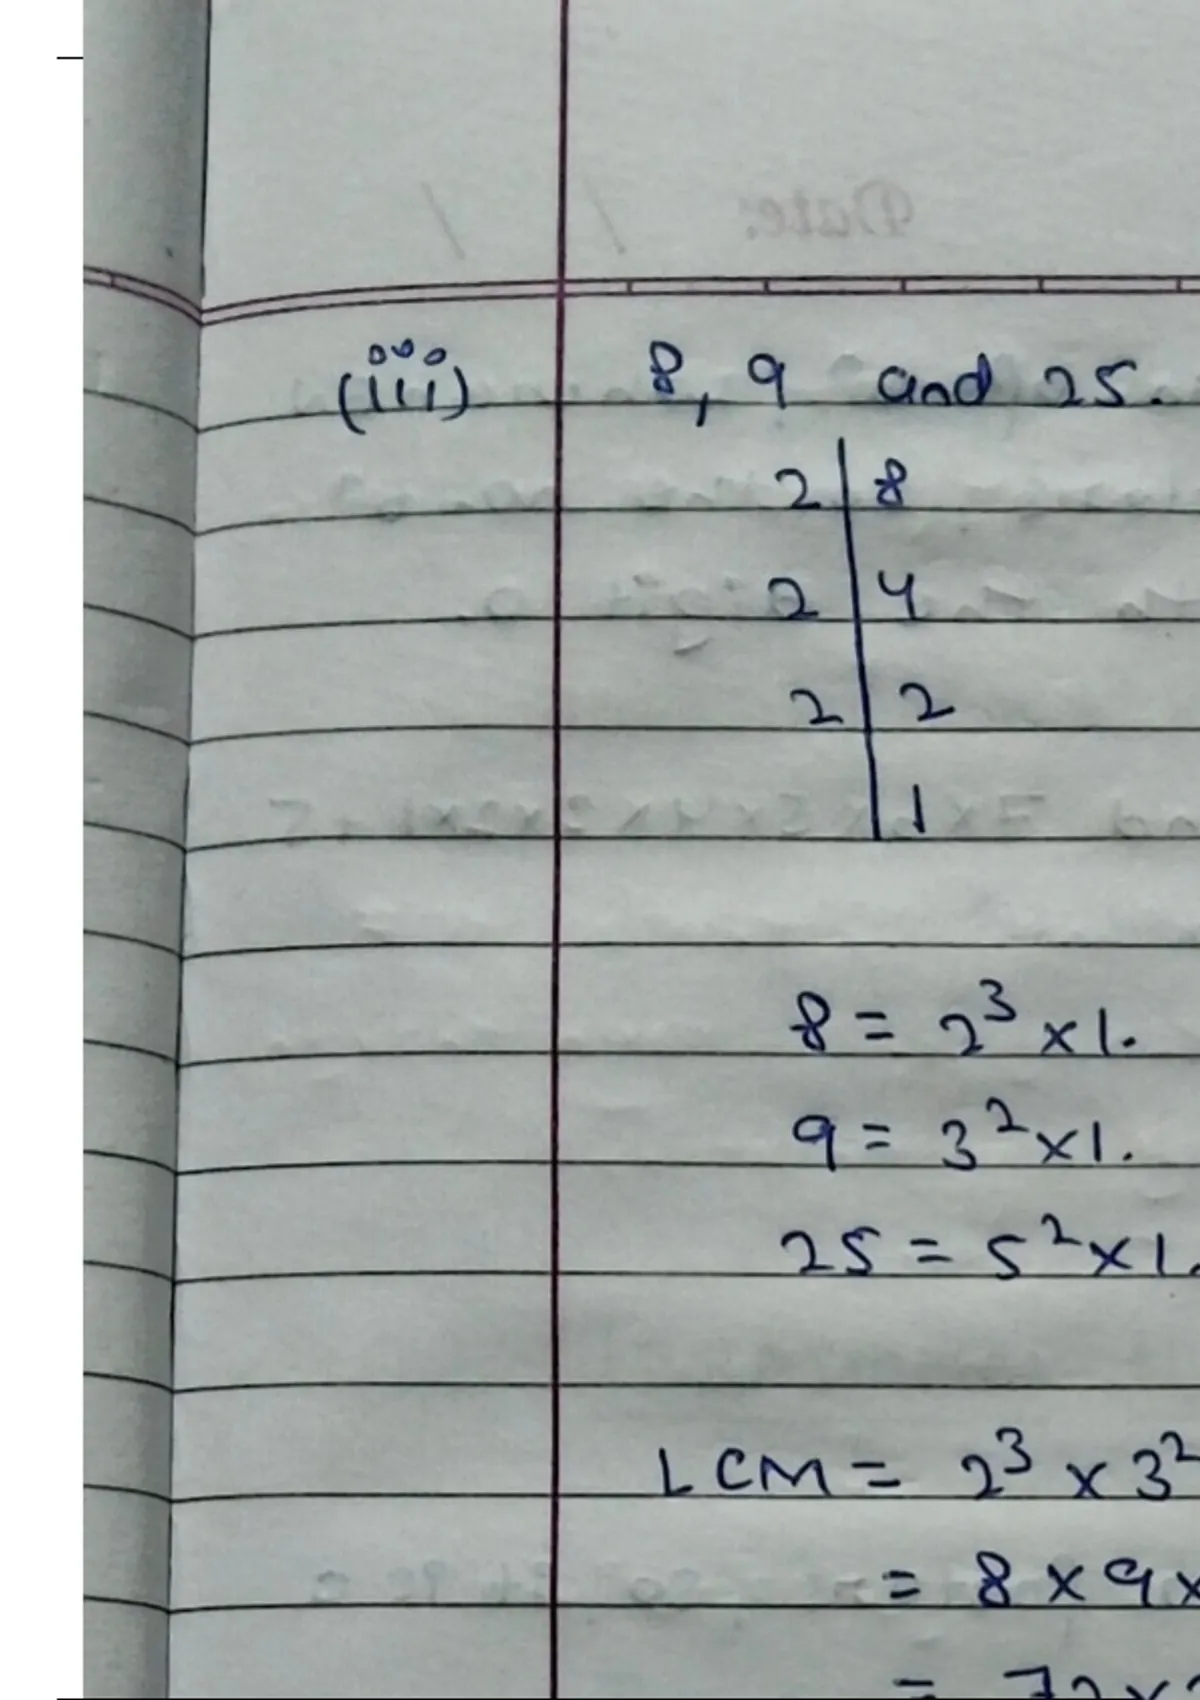 (iii) 8, 9 and 25.
2 | 8
2 | 4
2 | 2
| 1
8 = 2³ × 1.
9 = 3² × 1.
25 = 5² × 1.
LCM = 2³ × 3²
= 8 × 9 ×
= 72 ×